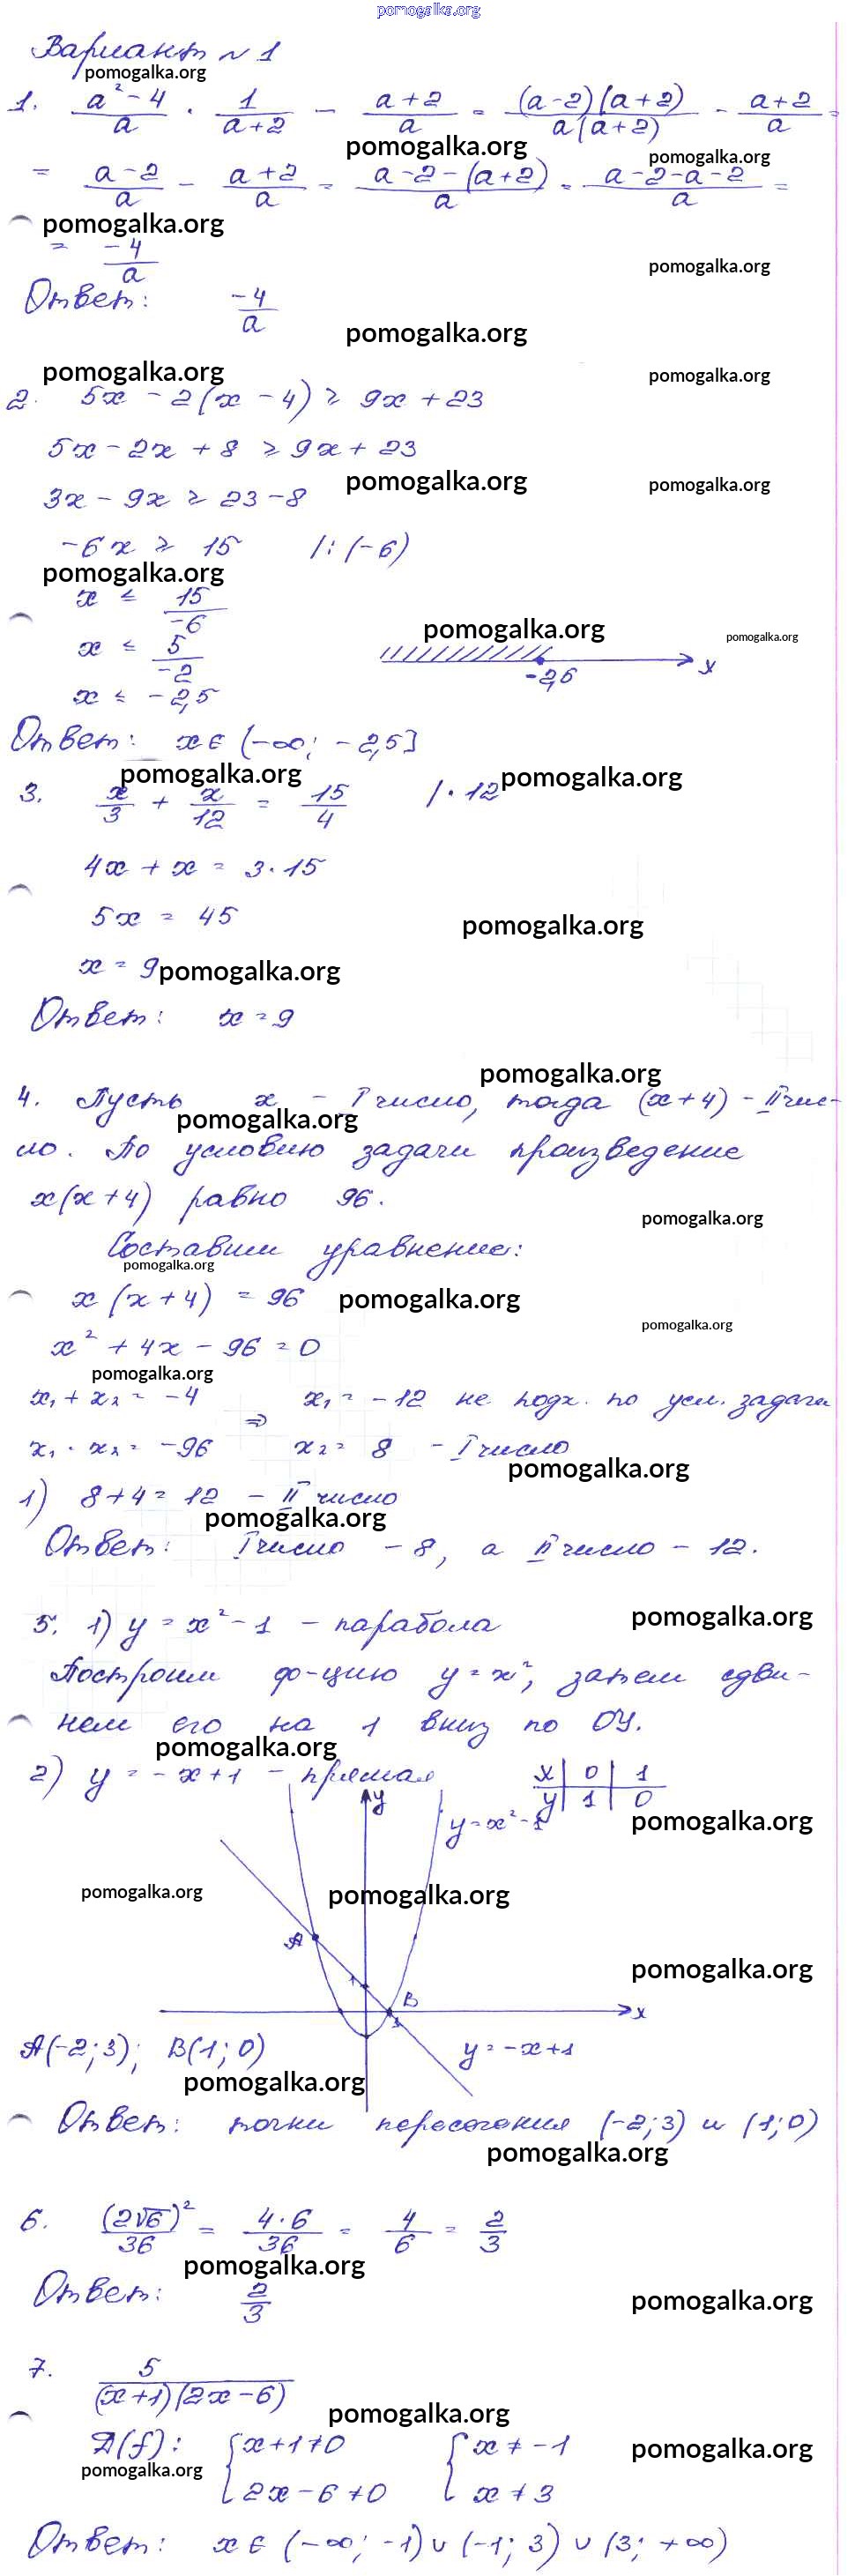 pomogalka.org
Вариант №1
pomogalka.org
1. (a²-4)/a · 1/(a+2) - (a+2)/a = ((a-2)(a+2))/(a(a+2)) - (a+2)/a =
pomogalka.org
pomogalka.org
= (a-2)/a - (a+2)/a = (a-2-(a+2))/a = (a-2-a-2)/a =
pomogalka.org
= -4/a
pomogalka.org
Ответ: -4/a
pomogalka.org
pomogalka.org
pomogalka.org
2. 5x - 2(x - 4) ≥ 9x + 23
5x - 2x + 8 ≥ 9x + 23
pomogalka.org
pomogalka.org
3x - 9x ≥ 23 - 8
-6x ≥ 15 /:(-6)
pomogalka.org
x ≤ 15/-6
pomogalka.org
pomogalka.org
x ≤ 5/-2
-2,5 x
x ≤ -2,5
Ответ: x∈(-∞; -2,5]
pomogalka.org
pomogalka.org
3. x/3 + x/12 = 15/4 /·12
4x + x = 3·15
5x = 45
pomogalka.org
x = 9
pomogalka.org
Ответ: x = 9
pomogalka.org
4. Пусть x - I число, тогда (x+4) - II чис-
pomogalka.org
ло. По условию задачи произведение
x(x+4) равно 96.
pomogalka.org
Составим уравнение:
pomogalka.org
x(x+4) = 96
pomogalka.org
pomogalka.org
x² + 4x - 96 = 0
pomogalka.org
x₁ + x₂ = -4 ⇒ x₁ = -12 не подх. по усл. задачи
x₁ · x₂ = -96 x₂ = 8 - I число
pomogalka.org
1) 8+4 = 12 - II число
pomogalka.org
Ответ: I число - 8, а II число - 12.
pomogalka.org
5. 1) y = x² - 1 - парабола
Построим ф-цию y = x², затем сдви-
нем его на 1 вниз по ОУ.
pomogalka.org
2) y = -x+1 - прямая x | 0 | 1
y | 1 | 0
pomogalka.org
y
y = x² - 1
pomogalka.org
pomogalka.org
A
pomogalka.org
1
B
1
x
A(-2; 3); B(1; 0) y = -x+1
pomogalka.org
Ответ: точки пересечения (-2; 3) и (1; 0)
pomogalka.org
6. (2√6)²/36 = 4·6/36 = 4/6 = 2/3
pomogalka.org
Ответ: 2/3
pomogalka.org
7. 5/((x+1)(2x-6))
pomogalka.org
D(f): { x+1≠0 { x ≠ -1
pomogalka.org
pomogalka.org
2x - 6 ≠ 0 x ≠ 3
Ответ: x∈(-∞; -1)∪(-1; 3)∪(3; +∞)